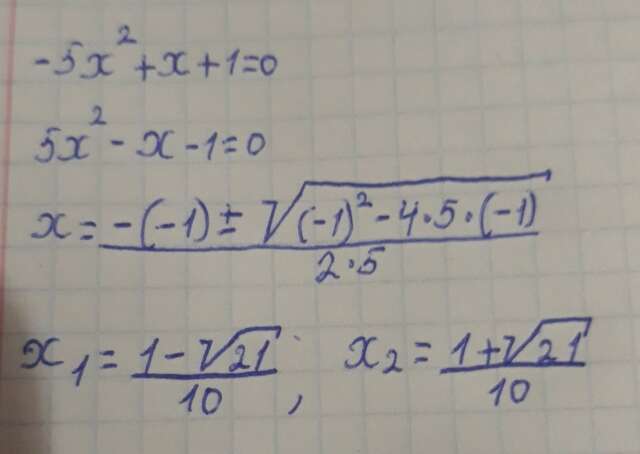 -5x²+x+1=0
5x²-x-1=0
x= (-(-1)±√((-1)²-4·5·(-1)))/(2·5)
x₁= (1-√21)/10 ; x₂= (1+√21)/10